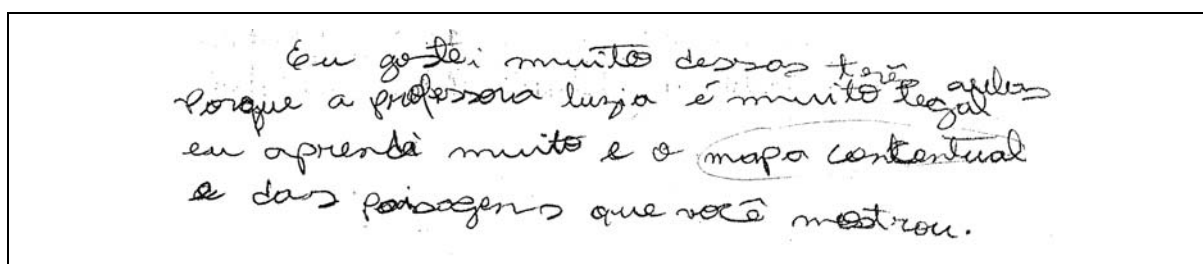 Eu gostei muito dessas três aulas
Porque a professora luzia é muito legal
eu aprendi muito e o mapa contentual
e das paisagens que você mostrou.